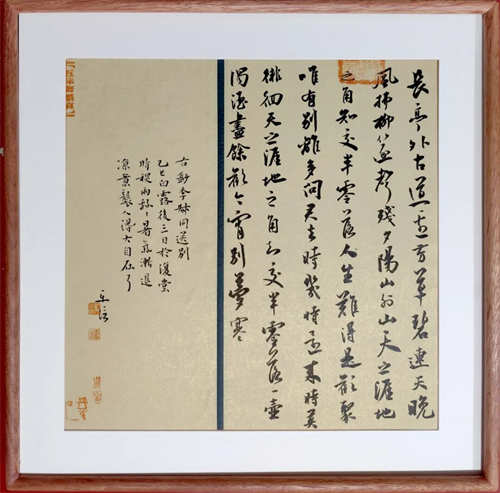 長亭外古道邊芳草碧連天晚
風拂柳笛聲殘夕陽山外山天之涯地
之角知交半零落人生難得是歡聚
唯有別離多問君去時幾時還來時莫
徘徊天之涯地之角知交半零落一壺
濁酒盡餘歡今宵別夢寒
李叔同送別
乙巳白露後三日於復堂
時雨暑氣漸退
涼意襲人得大自在